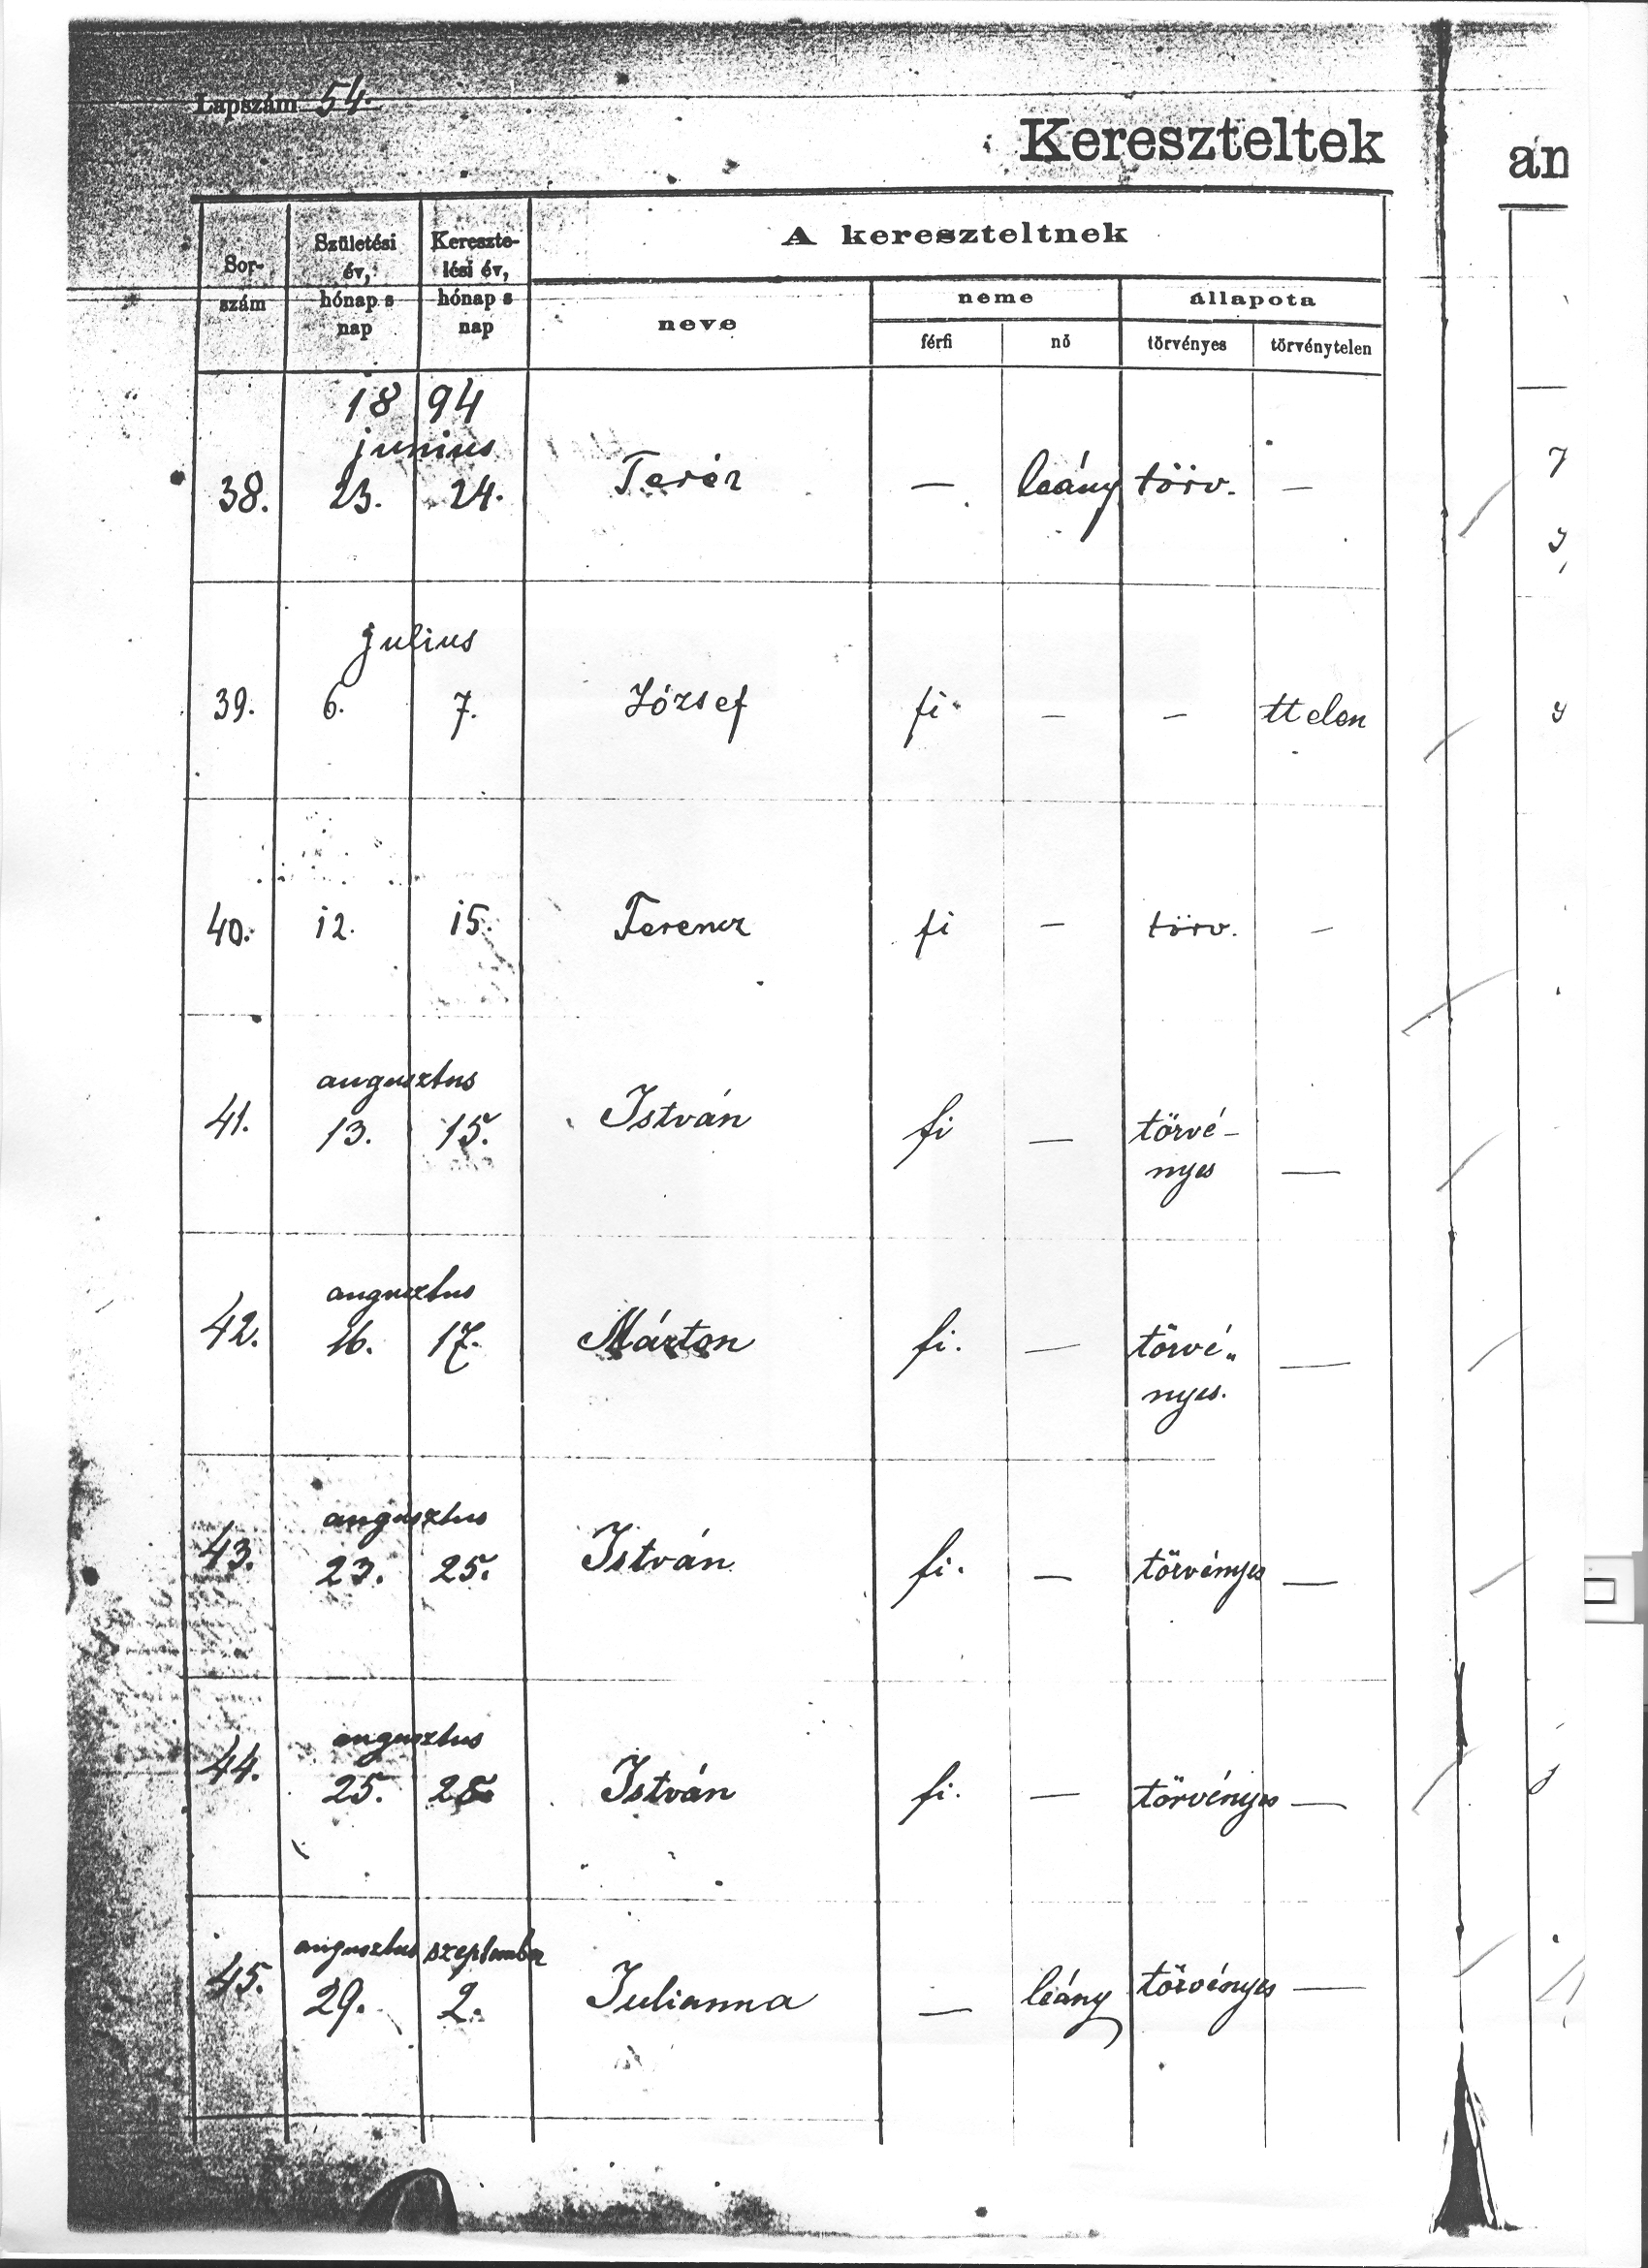 Lapszám 54.
Kereszteltek
an
Sor-
szám
Születési
év,
hónap s
nap
Kereszte-
lési év,
hónap s
nap
A kereszteltnek
neve
neme
állapota
férfi
nő
törvényes
törvénytelen
1894
junius
38. 23. 24. Teréz — leány törv. —
julius
39. 6. 7. József fi. — — ttelen
40. 12. 15. Ferencz fi — törv. —
augusztus
41. 13. 15. István fi — törvé-
nyes —
augusztus
42. 16. 17. Márton fi. — törvé„
nyes. —
augusztus
43. 23. 25. István fi. — törvényes —
augusztus
44. 25. István fi. — törvényes —
augusztus szeptember
45. 29. 2. Julianna — leány törvényes —